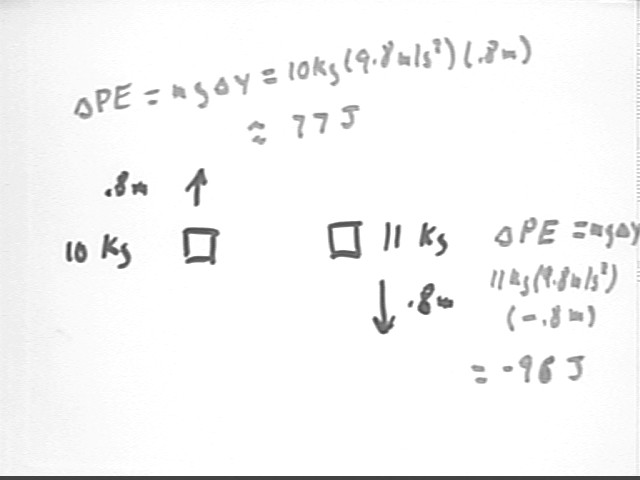 ΔPE = mgΔy = 10kg(9.8m/s²)(.8m)
≈ 77 J
.8m
10 Kg
11 Kg
.8m
ΔPE = mgΔy
11kg(9.8m/s²)
(-.8m)
= -96 J